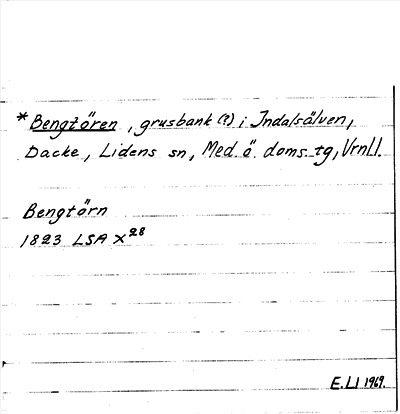 * Bengtören, grusbank (?) i Indalsälven,
Dacke, Lidens sn, Med. ö. doms. tg, Vrnll.
Bengtörn
1823 LSA X28
E.Ll 1969.